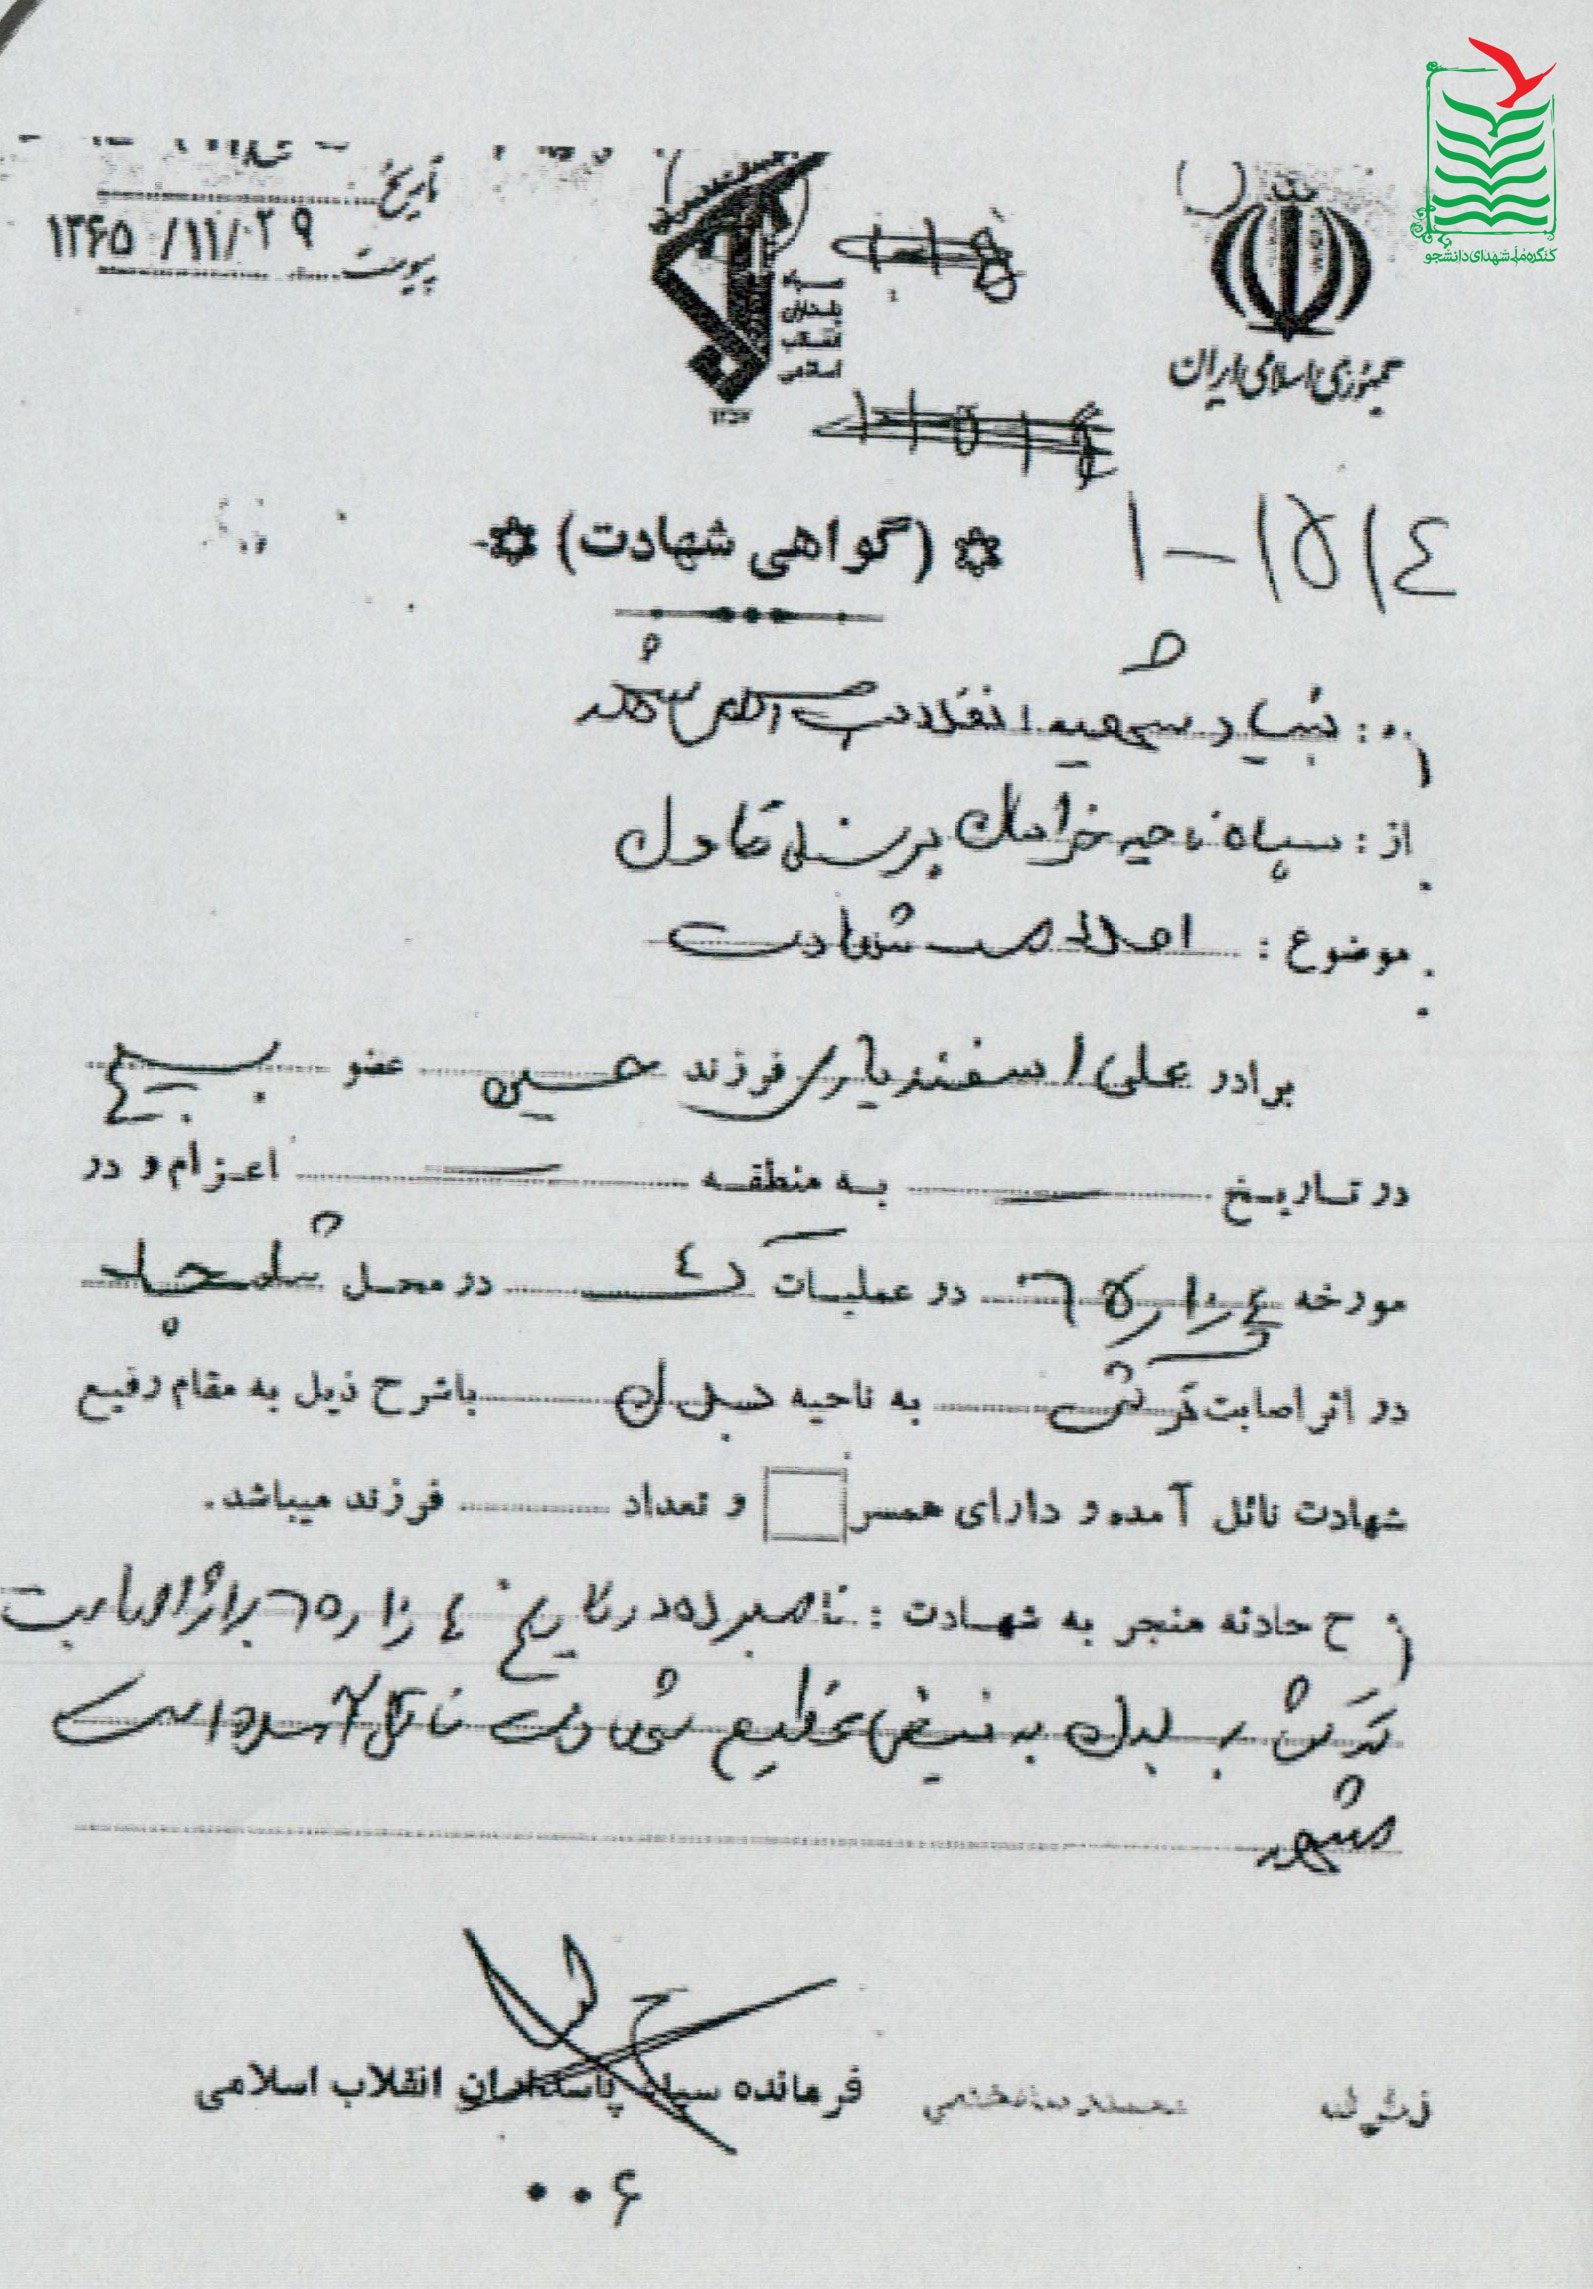 کنگره ملی شهدای دانشجو
جمهوری اسلامی ایران
تاریخ
۱۳۶۵/۱۱/۰۲۹
پیوست
۱۳۵۷
(گواهی شهادت)
بنیاد شهید انقلاب اسلامی مشهد
از : سپاه ناحیه خراسان پرسنلی تعاون
موضوع : شهادت
برادر علی اسفندیاری فرزند حسین عضو بسیج
در تاریخ — به منطقه — اعزام و در
مورخه ٤ر۱۰ر٦٥ در عملیات ک ٤ در محل شلمچه
در اثر اصابت ترکش به ناحیه بدن باشرح ذیل به مقام رفیع
شهادت نائل آمده و دارای همسر و تعداد فرزند میباشد.
ح حادثه منجر به شهادت : نامبرده در تاریخ ٤ر۱۰ر٦٥ بر اثر اصابت
ترکش به بدن به فیض عظیم شهادت نائل آمده است
مشهد
فرمانده سپاه پاسداران انقلاب اسلامی
۰۰۶